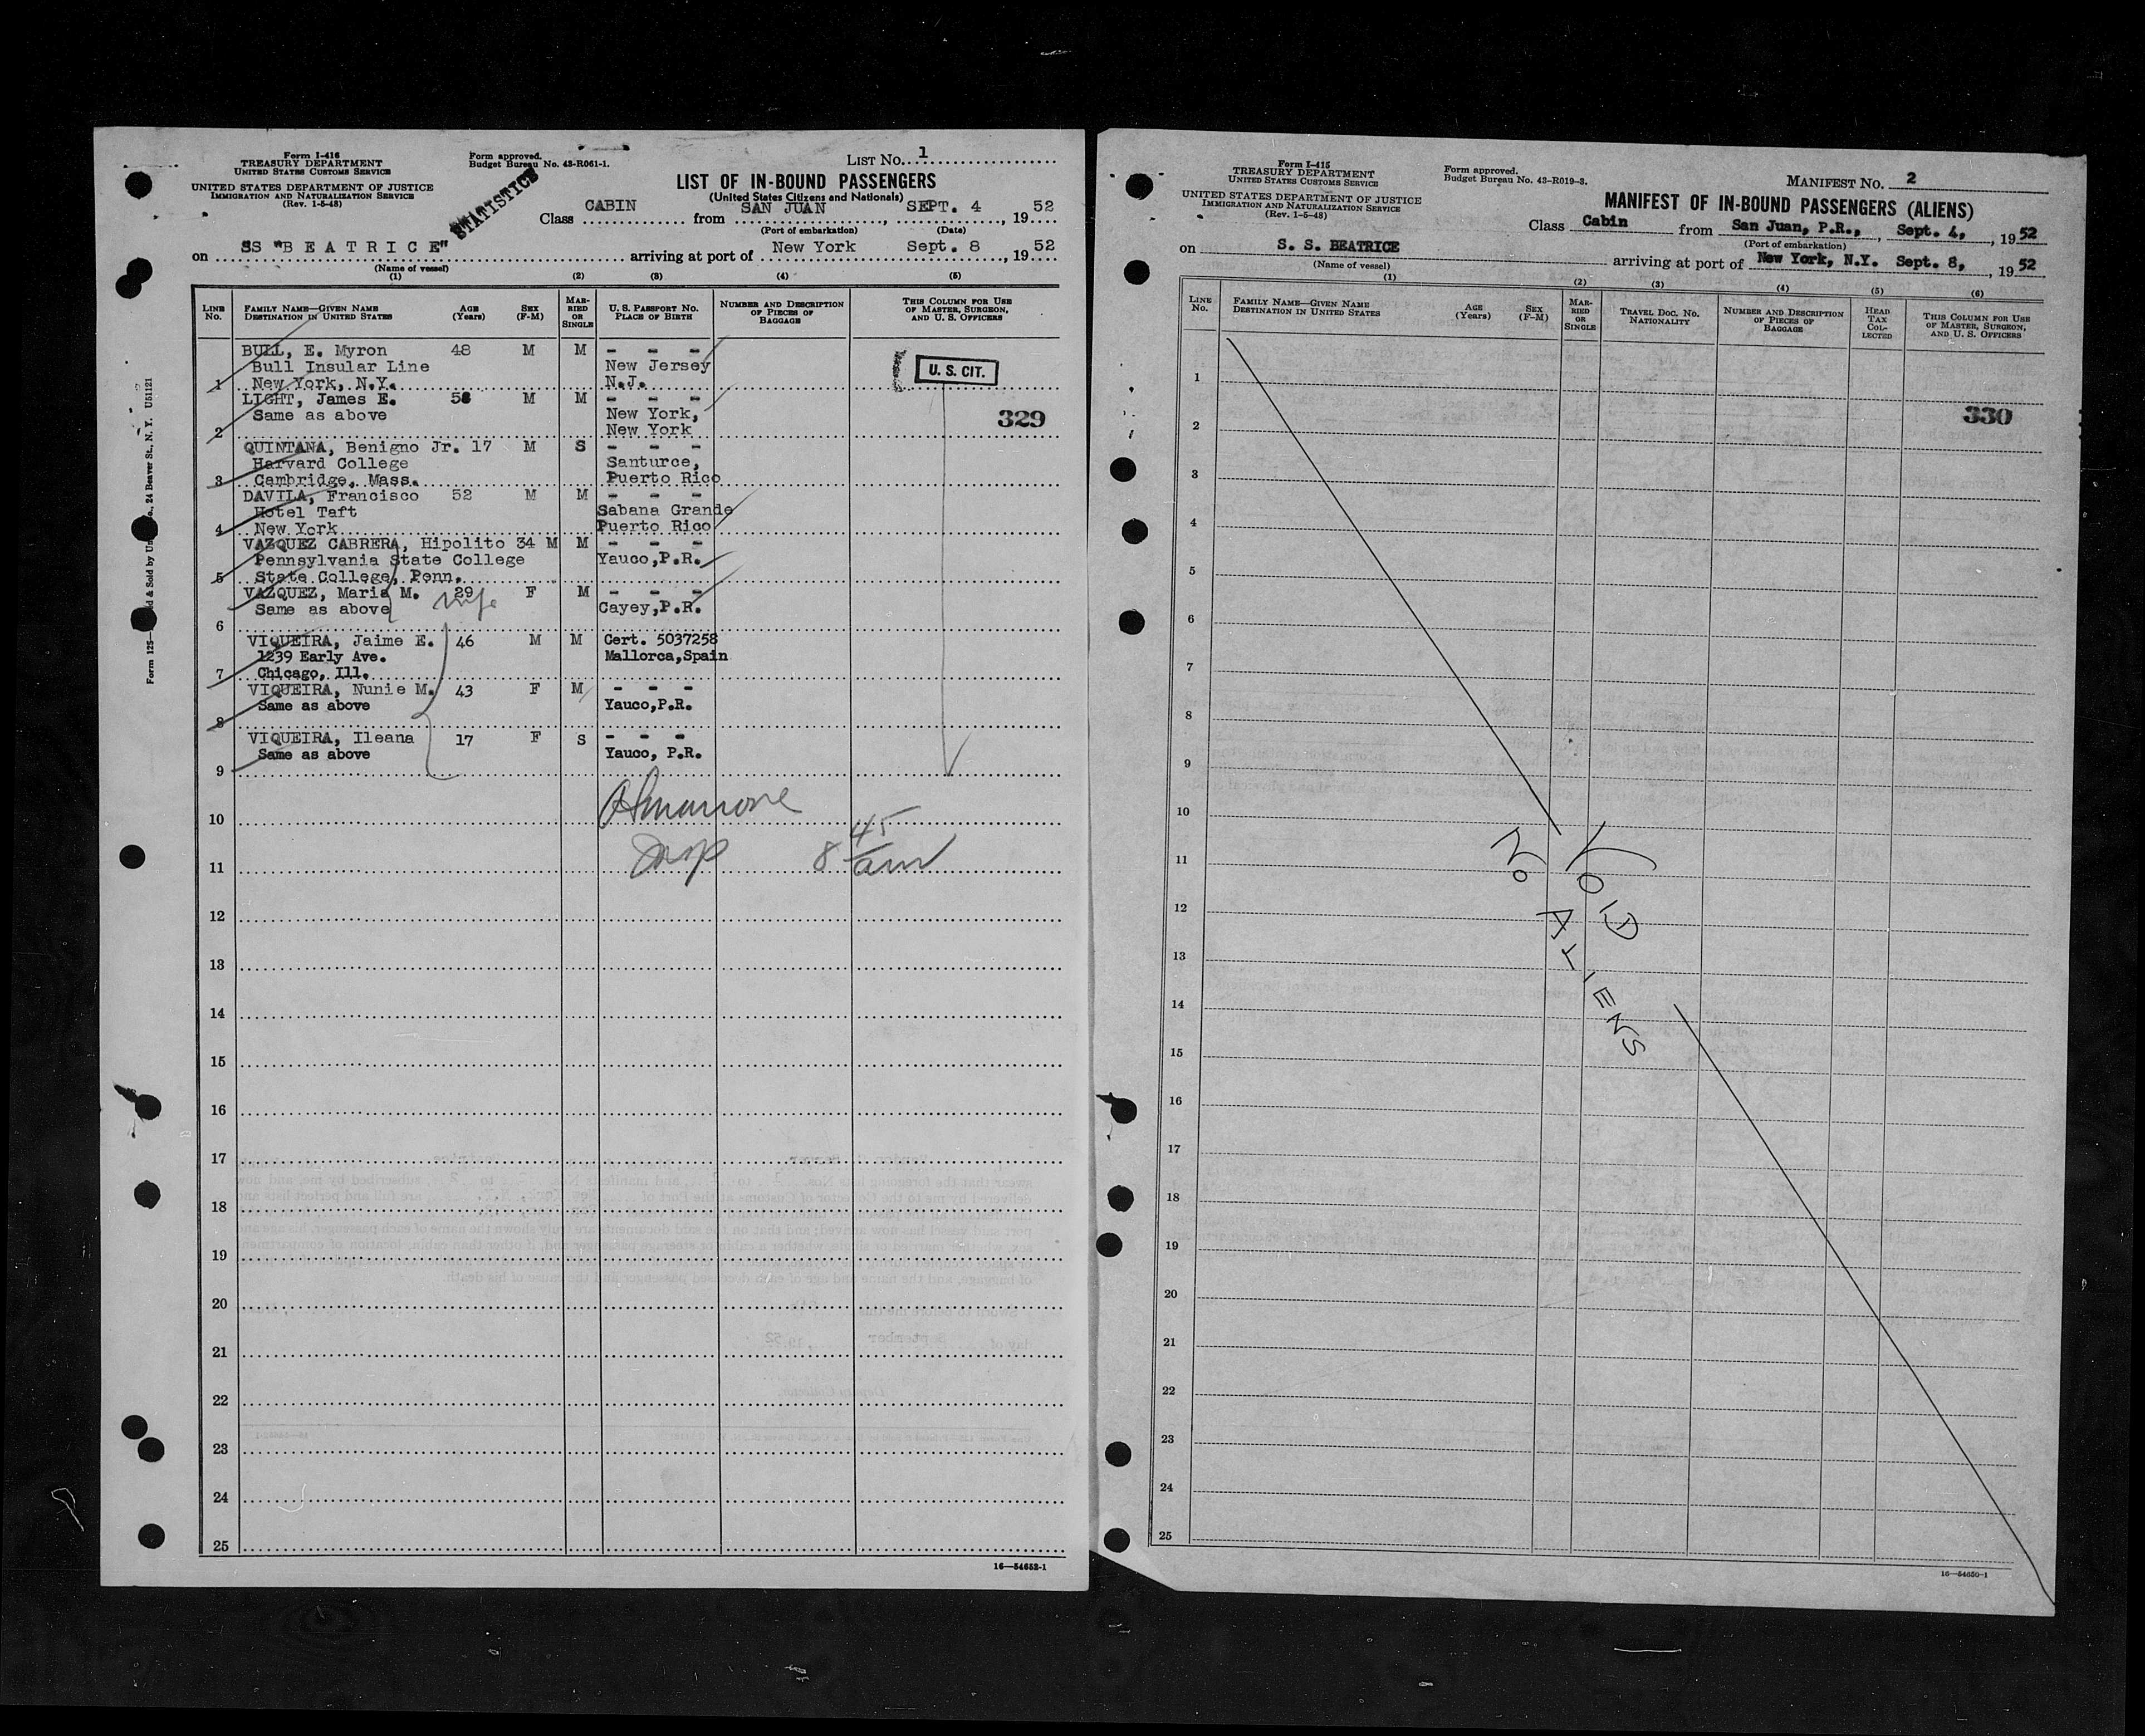 Form I-416
TREASURY DEPARTMENT
UNITED STATES CUSTOMS SERVICE
UNITED STATES DEPARTMENT OF JUSTICE
IMMIGRATION AND NATURALIZATION SERVICE
(Rev. 1-5-48)
Form approved.
Budget Bureau No. 43-R061-1.
STATISTICS
LIST No. 1
LIST OF IN-BOUND PASSENGERS
(United States Citizens and Nationals)
Class CABIN from SAN JUAN, SEPT. 4, 1952
(Port of embarkation) (Date)
on SS "BEATRICE" arriving at port of New York Sept. 8, 1952
(Name of vessel)
(1) (2) (3) (4) (5)
LINE No. FAMILY NAME—GIVEN NAME DESTINATION IN UNITED STATES AGE (Years) SEX (F-M) MARRIED OR SINGLE U. S. PASSPORT NO. PLACE OF BIRTH NUMBER AND DESCRIPTION OF PIECES OF BAGGAGE THIS COLUMN FOR USE OF MASTER, SURGEON, AND U. S. OFFICERS
BULL, E. Myron 48 M M - - -
Bull Insular Line New Jersey U. S. CIT.
1 New York, N.Y. N.J.
LIGHT, James E. 58 M M - - -
Same as above New York, 329
2 New York
QUINTANA, Benigno Jr. 17 M S - - -
Harvard College Santurce,
3 Cambridge, Mass. Puerto Rico
DAVILA, Francisco 52 M M - - -
Hotel Taft Sabana Grande
4 New York Puerto Rico
VAZQUEZ CABRERA, Hipolito 34 M M - - -
Pennsylvania State College Yauco,P.R.
5 State College, Penn.
VAZQUEZ, Maria M. 29 F M - - -
Same as above wife Cayey,P.R.
6
VIQUEIRA, Jaime E. 46 M M Cert. 5037258
1239 Early Ave. Mallorca,Spain
7 Chicago, Ill.
VIQUEIRA, Nunie M. 43 F M - - -
Same as above Yauco,P.R.
8
VIQUEIRA, Ileana 17 F S - - -
Same as above Yauco, P.R.
9
10
11 Insp 8 45 am
12
13
14
15
16
17
18
19
20
21
22
23
24
25
16—54652-1
Form I-415
TREASURY DEPARTMENT
UNITED STATES CUSTOMS SERVICE
UNITED STATES DEPARTMENT OF JUSTICE
IMMIGRATION AND NATURALIZATION SERVICE
(Rev. 1-5-48)
Form approved.
Budget Bureau No. 43-R019-3.
MANIFEST No. 2
MANIFEST OF IN-BOUND PASSENGERS (ALIENS)
Class Cabin from San Juan, P.R., Sept. 4, 1952
(Port of embarkation)
on S. S. BEATRICE arriving at port of New York, N.Y. Sept. 8, 1952
(Name of vessel)
(1) (2) (3) (4) (5) (6)
LINE No. FAMILY NAME—GIVEN NAME DESTINATION IN UNITED STATES AGE (Years) SEX (F-M) MARRIED OR SINGLE TRAVEL DOC. NO. NATIONALITY NUMBER AND DESCRIPTION OF PIECES OF BAGGAGE HEAD TAX COLLECTED THIS COLUMN FOR USE OF MASTER, SURGEON, AND U. S. OFFICERS
1
330
2
3
4
5
6
7
8
9
10
VOID
NO ALIENS
11
12
13
14
15
16
17
18
19
20
21
22
23
24
25
16—54650-1